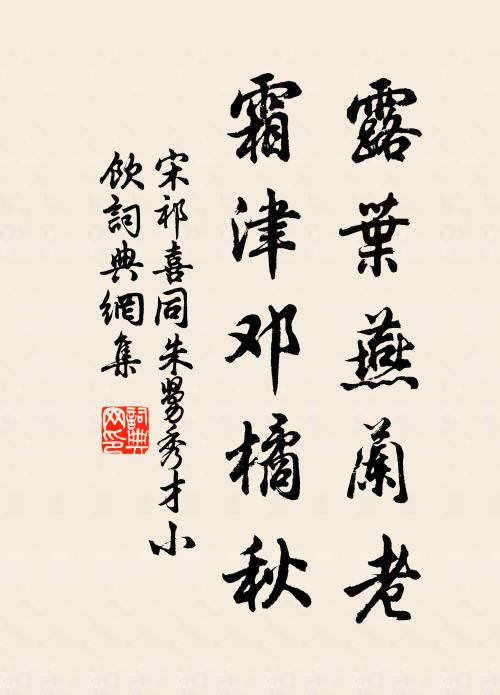 露葉燕蘭老
霜津邓橘秋
宋祁喜同朱昮秀才小
飲詞典網集
詞典网印